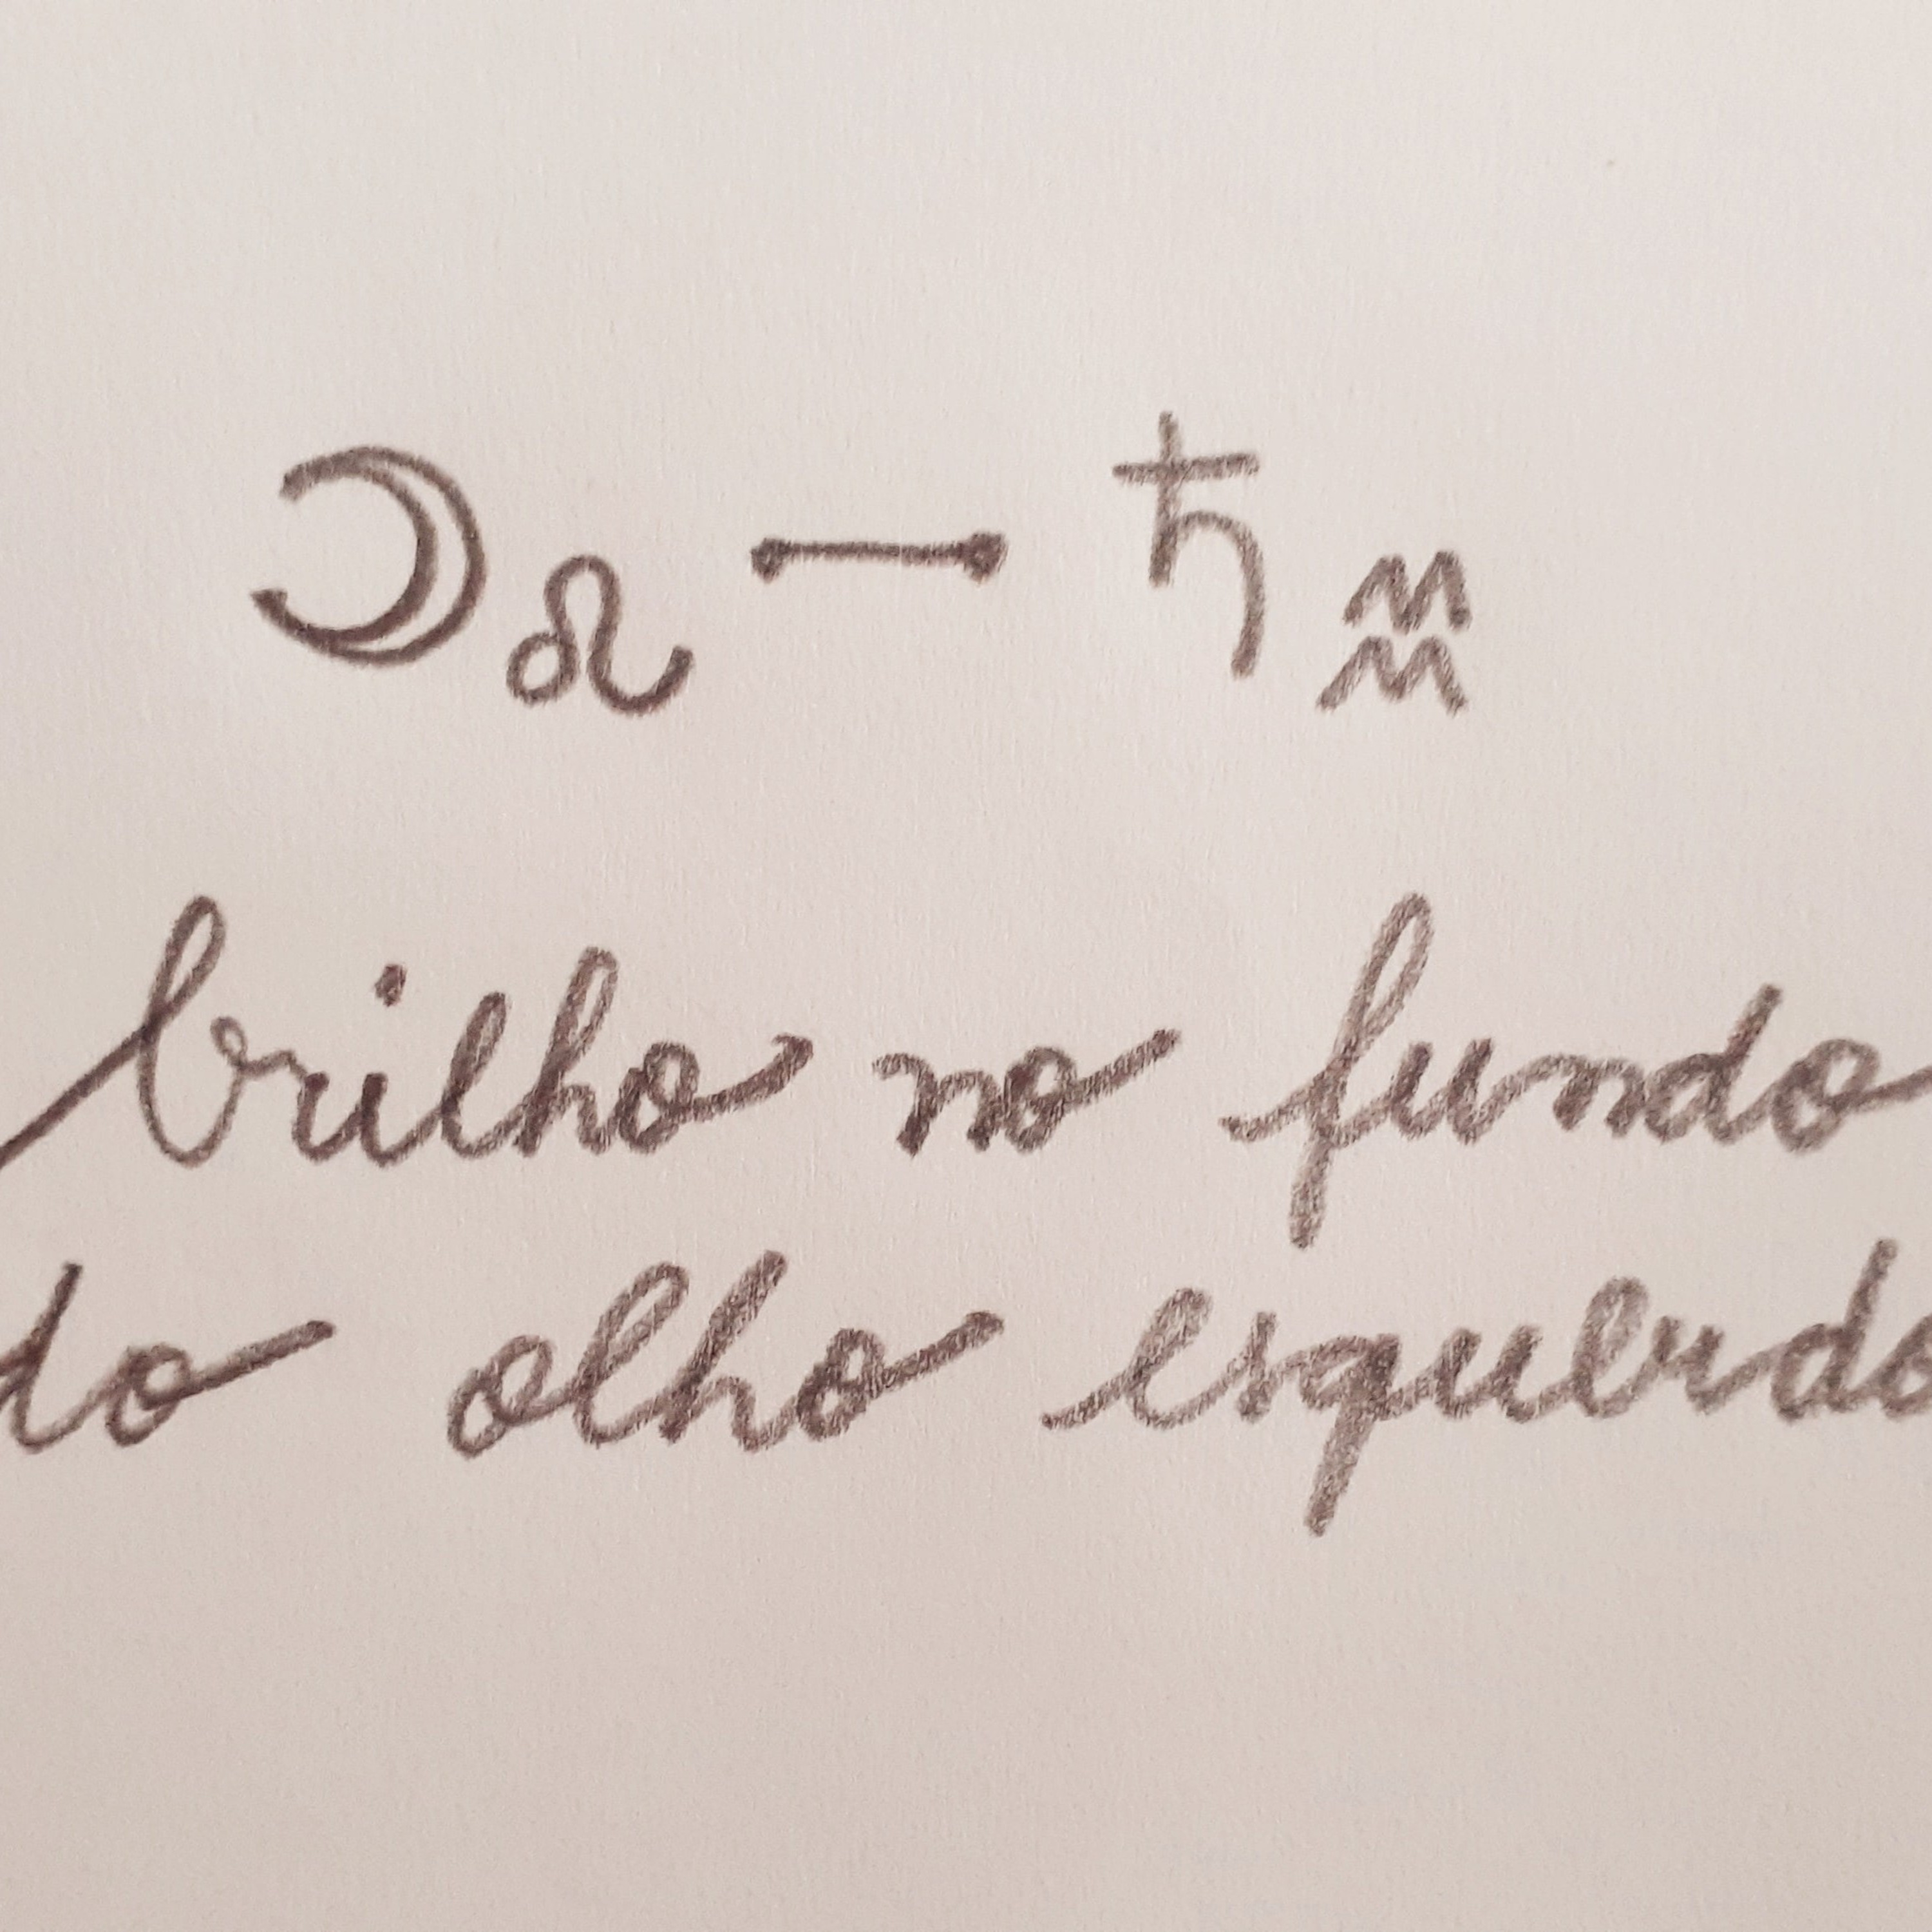 ☽♌ ⟷ ♄♒
brilho no fundo
do olho esquerdo